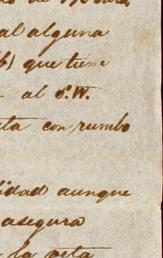 al alguna
que tiene
al S.W.
ta con rumbo
lidad aunque
asegura
la veta